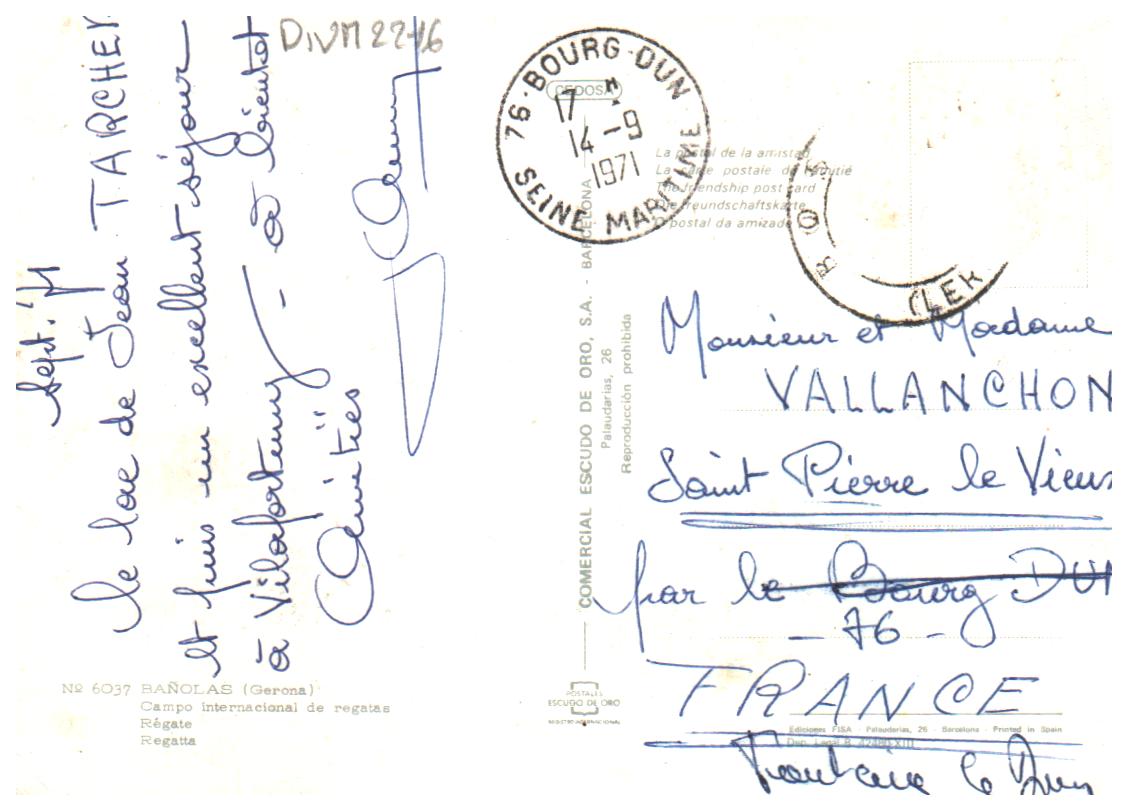 DIVM 22-16
Sept. 71
le lac de Jean TARCHER
et puis un excellent séjour
à Vilafortuny - à bientôt
Amitiés
Nº 6037 BAÑOLAS (Gerona)
Campo internacional de regatas
Régate
Regatta
CEDOSA
COMERCIAL ESCUDO DE ORO, S.A. - BARCELONA
Palaudarias, 26
Reproducción prohibida
POSTALES
ESCUDO DE ORO
REGISTRO INTERNACIONAL
76 · BOURG-DUN
17 H
14 - 9
1971
SEINE MARITIME
La postal de la amistad
La carte postale de l'amitié
The friendship post card
Die freundschaftskarte
O postal da amizade
Monsieur et Madame
VALLANCHON
Saint Pierre le Vieux
par le Bourg DUN
- 76 -
FRANCE
Ediciones FISA - Palaudarias, 26 - Barcelona - Printed in Spain
Dep. Legal B. 42480-XIII
Fontaine le Dun